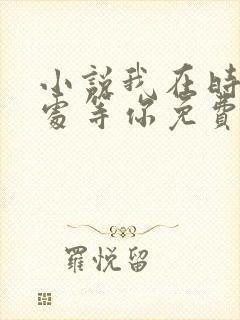 小説我在時
處等你免費
羅悅留